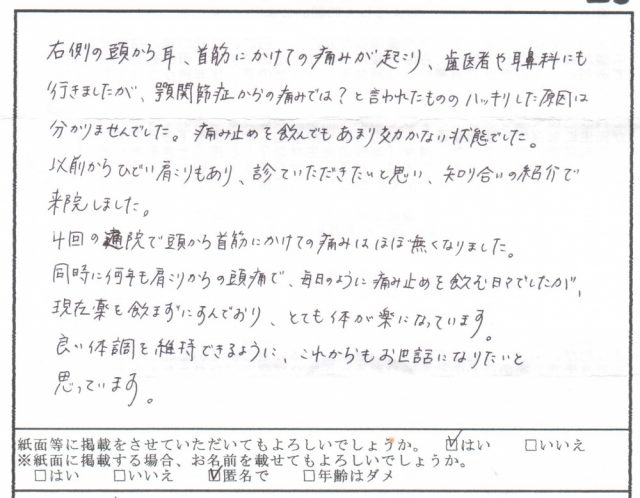 右側の頭から耳、首筋にかけての痛みが起こり、歯医者や耳鼻科にも
行きましたが、顎関節症からの痛みでは？と言われたもののハッキリした原因は
分かりませんでした。痛み止めを飲んでもあまり効かない状態でした。
以前からひどい肩こりもあり、診ていただきたいと思い、知り合いの紹介で
来院しました。
4回の通院で頭から首筋にかけての痛みはほぼ無くなりました。
同時に何年も肩こりからの頭痛で、毎日のように痛み止めを飲む日々でしたが、
現在薬を飲まずにすんでおり、とても体が楽になっています。
良い体調を維持できるように、これからもお世話になりたいと
思っています。
紙面等に掲載をさせていただいてもよろしいでしょうか。 ☑はい □いいえ
※紙面に掲載する場合、お名前を載せてもよろしいでしょうか。
□はい □いいえ ☑匿名で □年齢はダメ